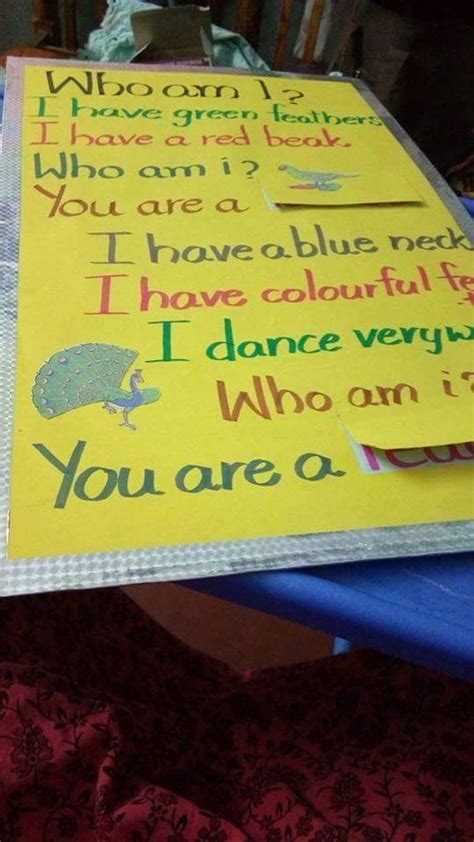 Who am I?
I have green feathers
I have a red beak.
Who am i?
You are a
I have a blue neck
I have colourful
I dance very
Who am i?
You are a